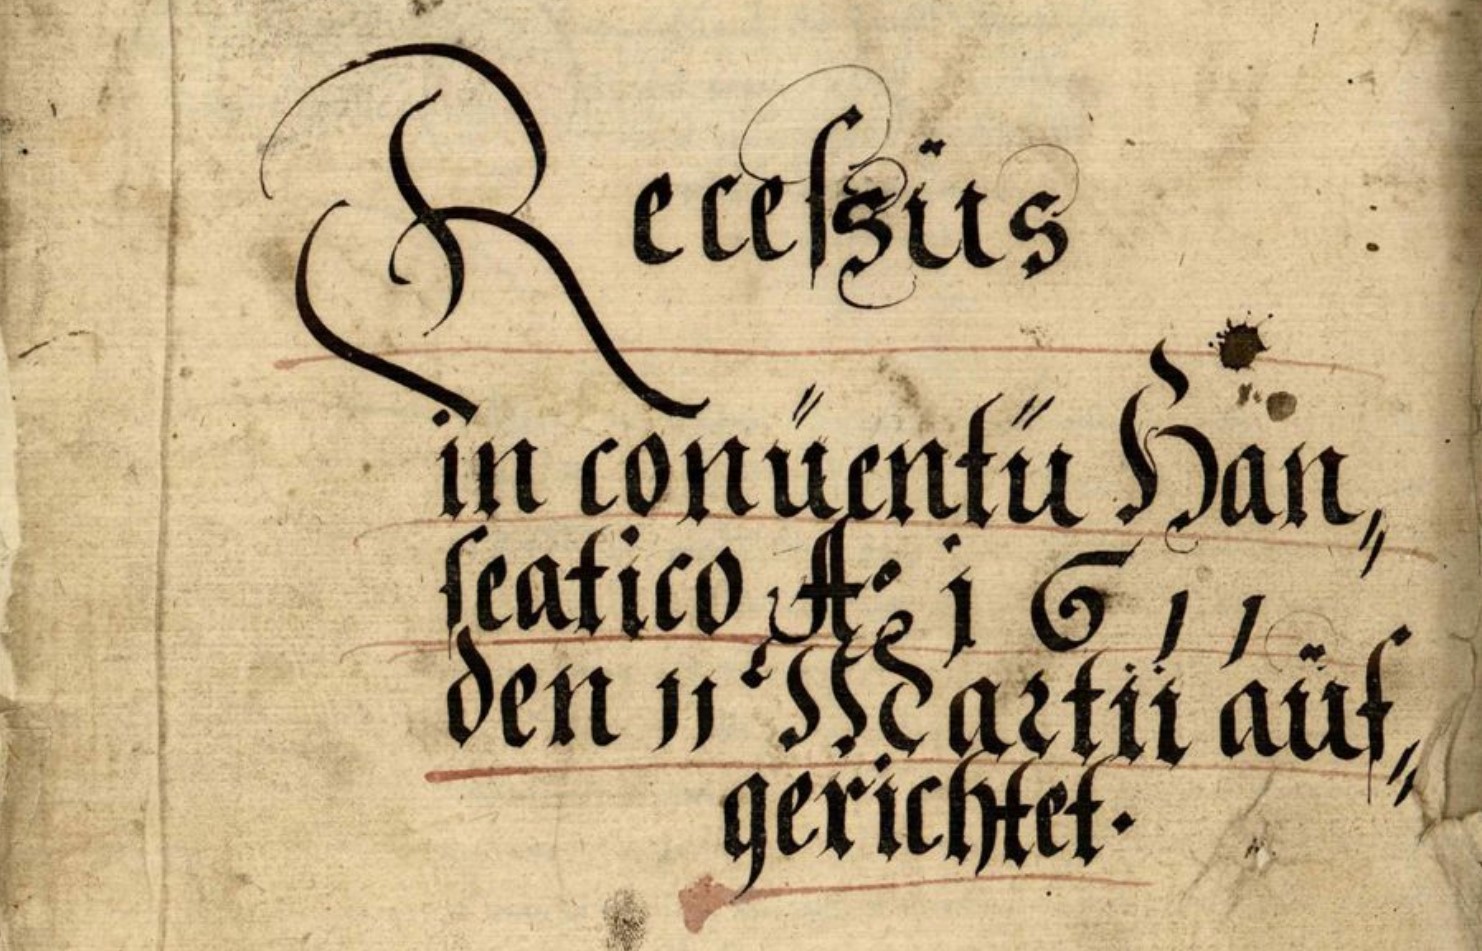 Receſsüs
in conüentü Han„
ſeatico A° 1611
den 11 Martii aüf„
gerichtet.